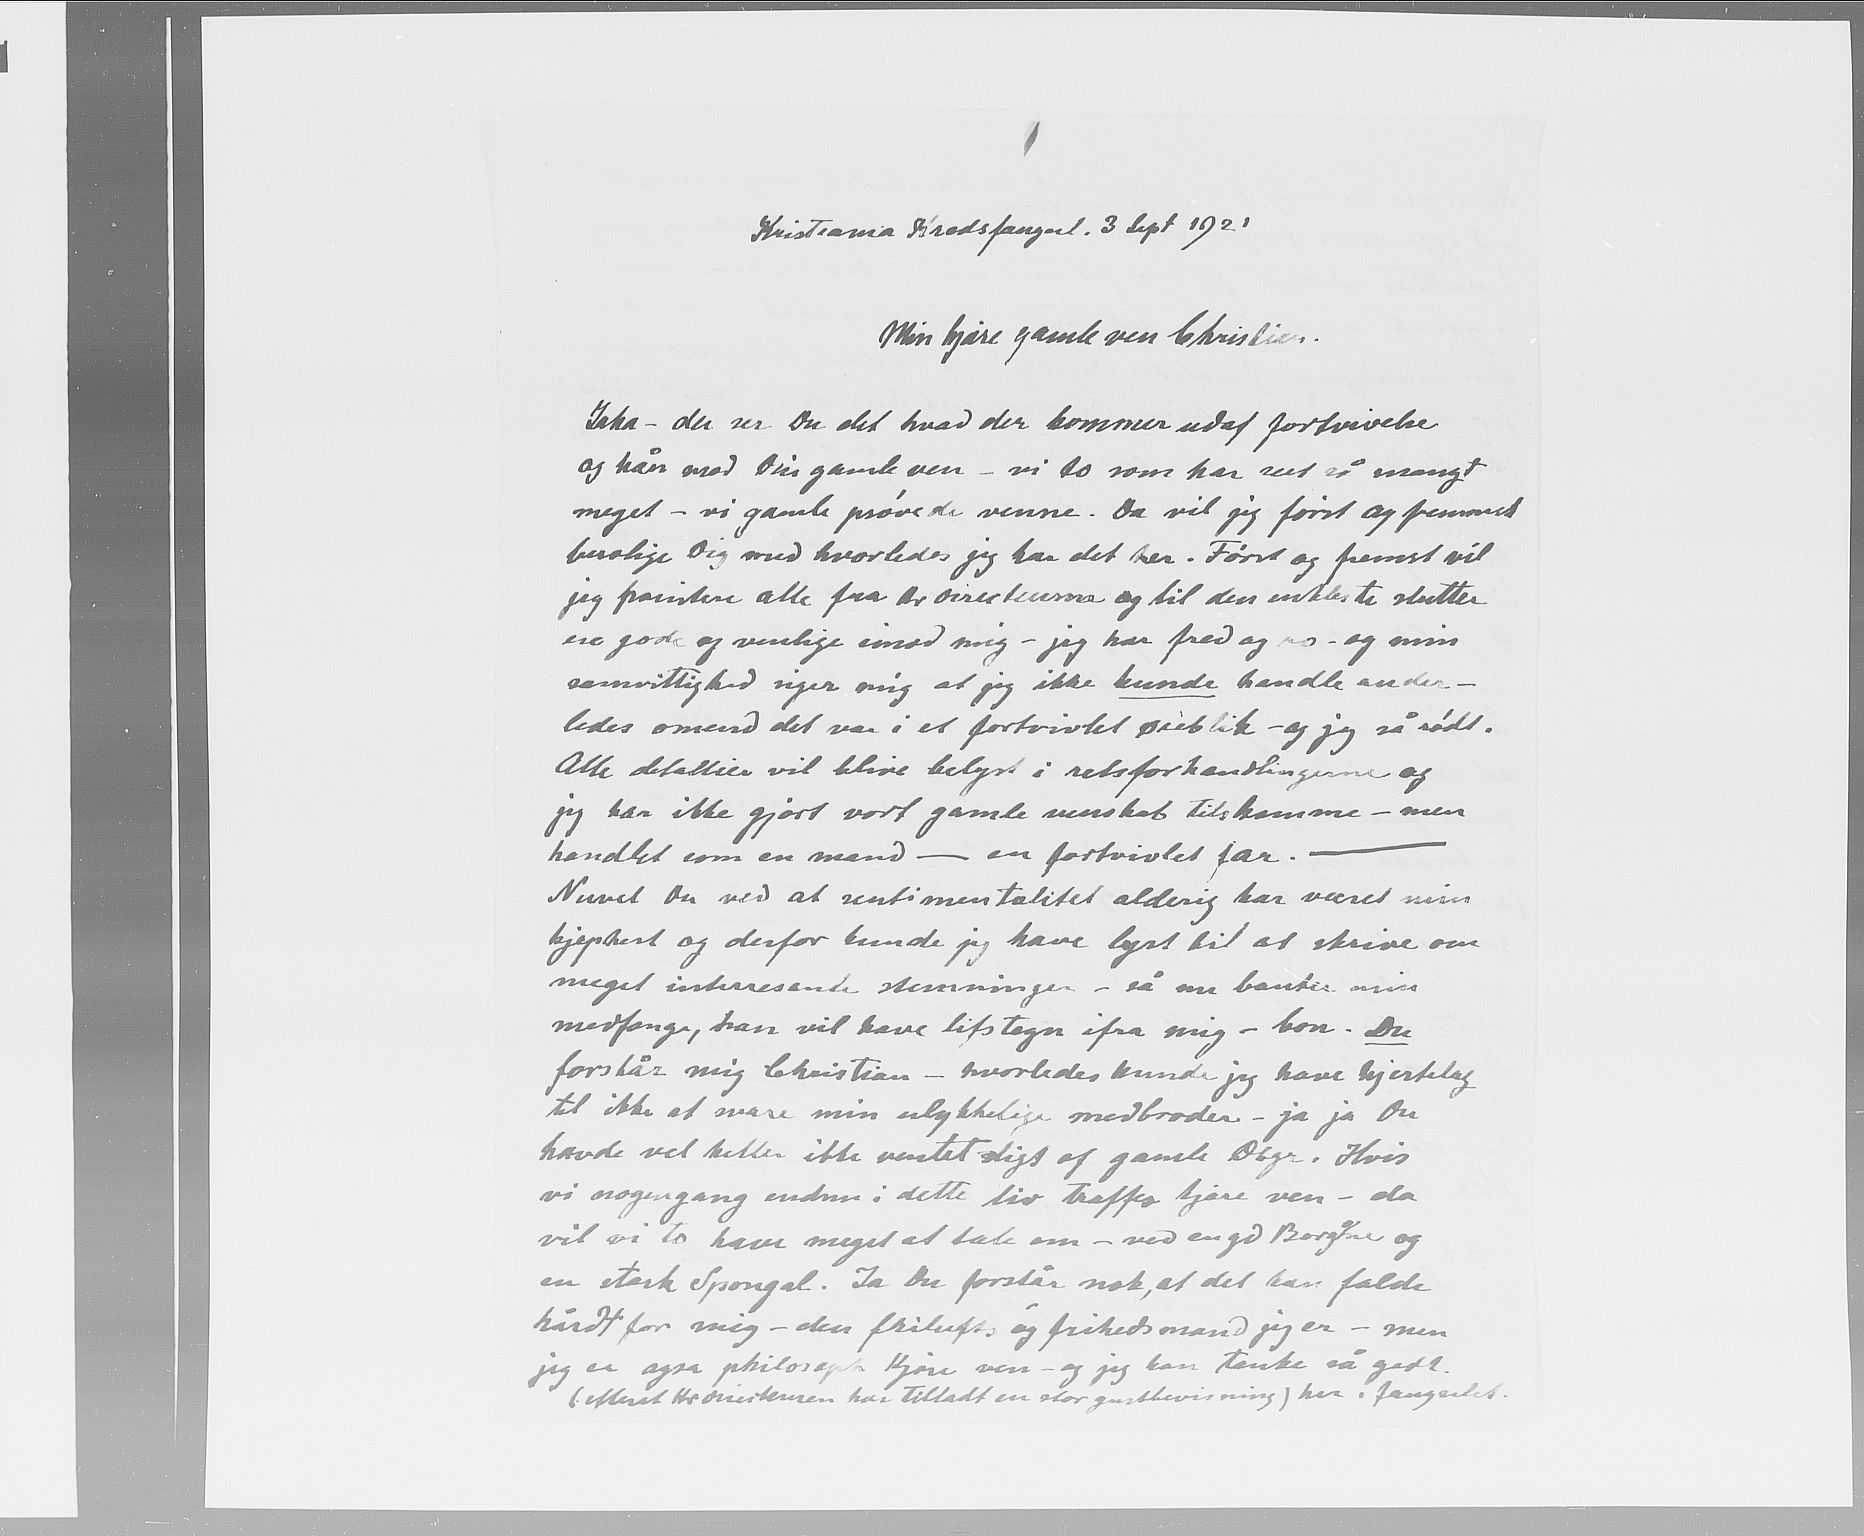 Kristiania Kredsfængsel. 3 Sept 1921
Min kjære gamle ven Christian.
Jaha – der ser Du det hvad der kommer udaf fortvivelse
og hån mod Din gamle ven – vi to som har set så mangt
meget – vi gamle prövede venne. Da vil jig först og fremmest
berolige Dig med hvorledes jig har det her. Först og fremst vil
jig alle fra Hr Directeurene og til den enkleste slutter
ere gode og venlige imod mig – jig har fred og ro – og min
samvittighed siger mig at jig ikke kunde handle ander–
ledes omend det var i et fortvivlet øieblik – og jig så rödt.
Alle detallier vil blive belyst i retsforhandlingerne og
jig har ikke gjört vort gamle venskab tilskamme – men
handlet som en mand — en fortvivlet far. —
Nuvel Du ved at sentimentalitet alderig har været min
kjephest og derfor kunde jig have lyst til at skrive om
meget interresente stemninger – så nu banker min
medfange, han vil have lifstegn ifra mig – bon. Du
forstår mig Christian – hvorledes kunde jig have hjertelag
til ikke at svare min ulykkelige medbroder – ja ja Du
havde vel heller ikke ventet sligt af gamle . Hvis
vi nogengang endnu i dette liv træffes kjære ven – da
vil vi to have meget at tale om – ved en gd og
en stærk . Ja Du forstår nok, at det kan falde
hårdt for mig – den frilufts og frihedsmand jig er – men
jig er ogsa philosoph kjære ven – og jig kan tænke så godt.
(: efterat Hr Directeuren har tilladt en stor gunstbevisning) her i fængselet.